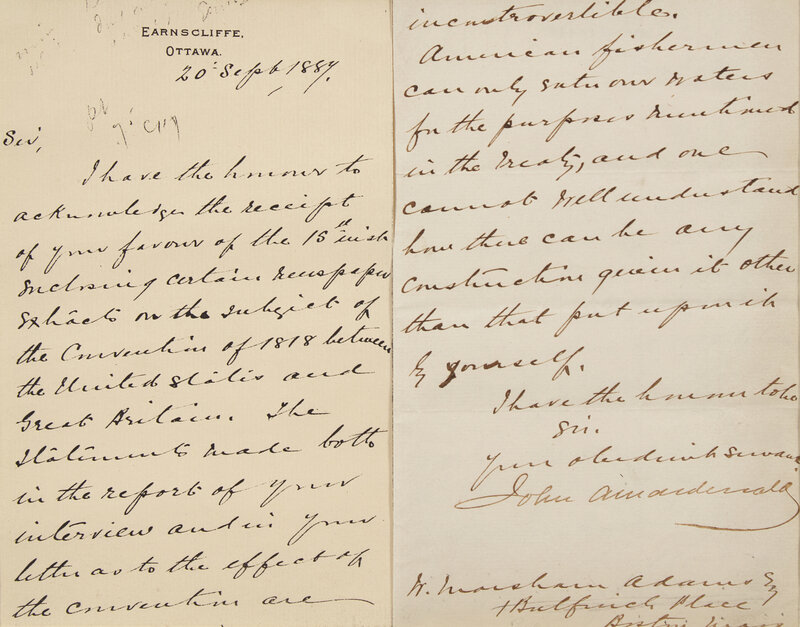 EARNSCLIFFE,
OTTAWA.
20: Sept 1887.
Sir,
I have the honour to
acknowledge the receipt
of your favour of the 15th inst
enclosing certain newspaper
extracts on the subject of
the Convention of 1818 between
the United States and
Great Britain. The
statements made both
in the report of your
interview and in your
letter as to the effect of
the convention are
incontrovertible.
American fishermen
can only enter our waters
for the purposes mentioned
in the treaty, and one
cannot well understand
how there can be any
construction given it other
than that put upon it
by yourself.
I have the honour to be
Sir.
your obedient servant
John A Macdonald
W. Marsham Adams Esq
Bulfinch Place